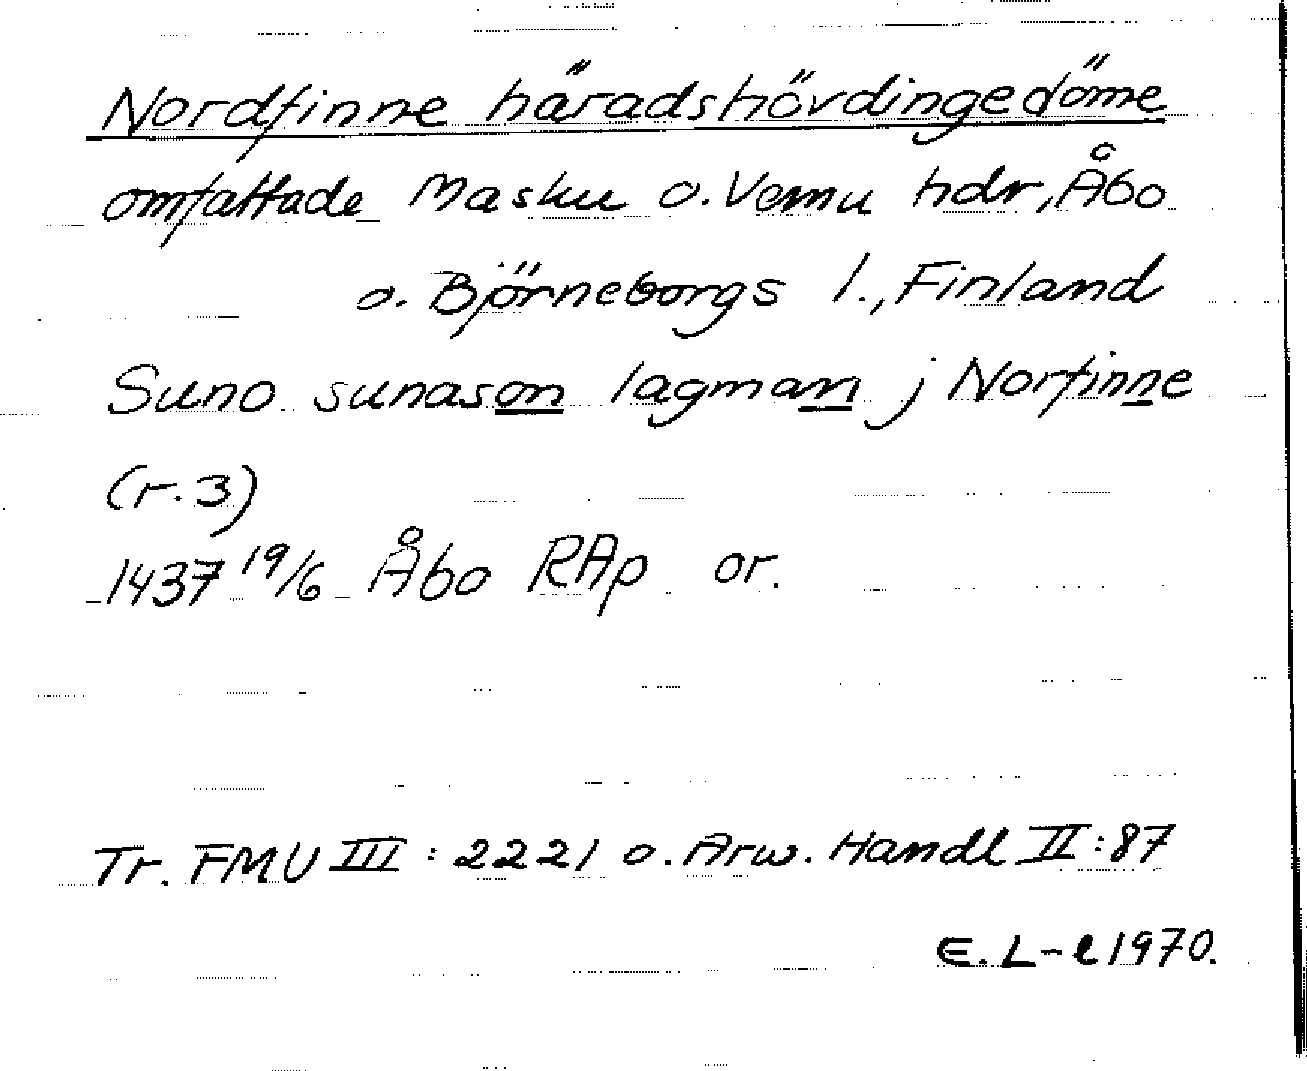 Nordfinne häradshövdingedöme
omfattade Masku o. Vemu hdr, Åbo
o. Björneborgs l., Finland
Suno sunason lagman j Norfinne
(r. 3)
1437 19/6 Åbo RAp or.
Tr. FMU III : 2221 o. Arw. Handl II : 87
E. L-l 1970.